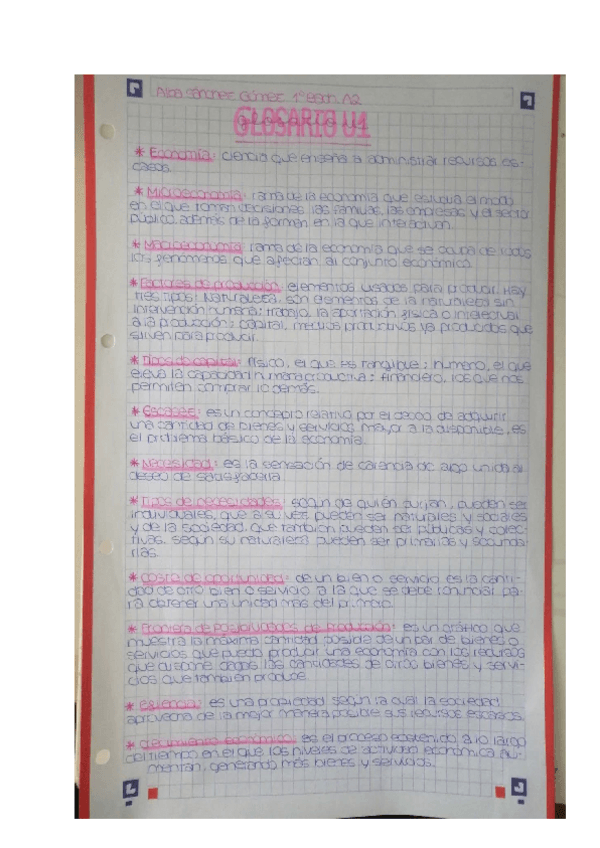 Alba Sánchez Gómez 1º Bach. A2
GLOSARIO U1
* Economía: ciencia que enseña a administrar recursos es-
casos.
* Microeconomía: rama de la economía que estudia el modo
en el que toman decisiones las familias, las empresas y el sector
público, además de la forma en la que interactúan.
* Macroeconomía: rama de la economía que se ocupa de todos
los fenómenos que afectan al conjunto económico.
* Factores de producción: elementos usados para producir. Hay
tres tipos: Naturaleza, son elementos de la naturaleza sin
intervención humana; trabajo, la aportación física o intelectual
a la producción; capital, medios productivos ya producidos que
sirven para producir.
* Tipos de capital: físico, el que es tangible; humano, el que
eleva la capacidad humana productiva; financiero, los que nos
permiten comprar lo demás.
* Escasez: es un concepto relativo por el deseo de adquirir
una cantidad de bienes y servicios mayor a la disponible, es
el problema básico de la economía.
* Necesidad: es la sensación de carencia de algo unida al
deseo de satisfacerla.
* Tipos de necesidades: según de quién surjan, pueden ser
individuales, que a su vez pueden ser naturales y sociales
y de la sociedad, que también pueden ser públicas y colec-
tivas. según su naturaleza pueden ser primarias y secunda-
rias.
* Coste de oportunidad: de un bien o servicio es la canti-
dad de otro bien o servicio a la que se debe renunciar pa-
ra obtener una unidad más del primero.
* Frontera de Posibilidades de Producción: es un gráfico que
muestra la máxima cantidad posible de un par de bienes o
servicios que puede producir una economía con los recursos
que dispone dadas las cantidades de otros bienes y servi-
cios que también produce.
* Eficiencia: es una propiedad según la cual la sociedad
aprovecha de la mejor manera posible sus recursos escasos.
* Crecimiento económico: es el proceso sostenido a lo largo
del tiempo en el que los niveles de actividad económica au-
mentan, generando más bienes y servicios.